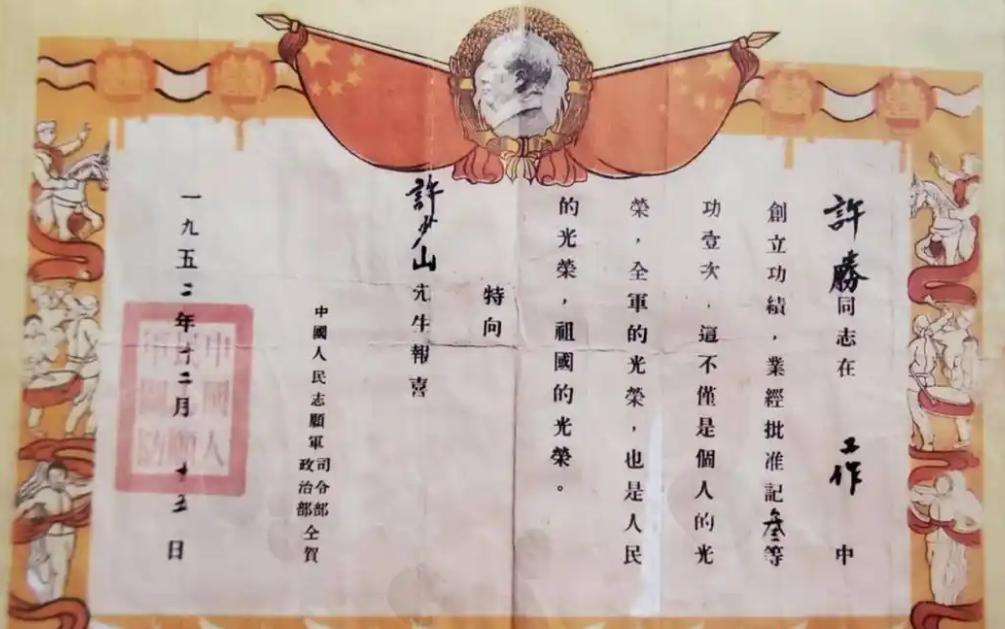 許勝同志在 工作 中
創立功績，業經批准記叁等
功壹次，這不僅是個人的光
榮，全軍的光榮，也是人民
的光榮，祖國的光榮。
特向
許多山先生報喜
中國人民志願軍司令部政治部仝賀
一九五二年十二月十五日